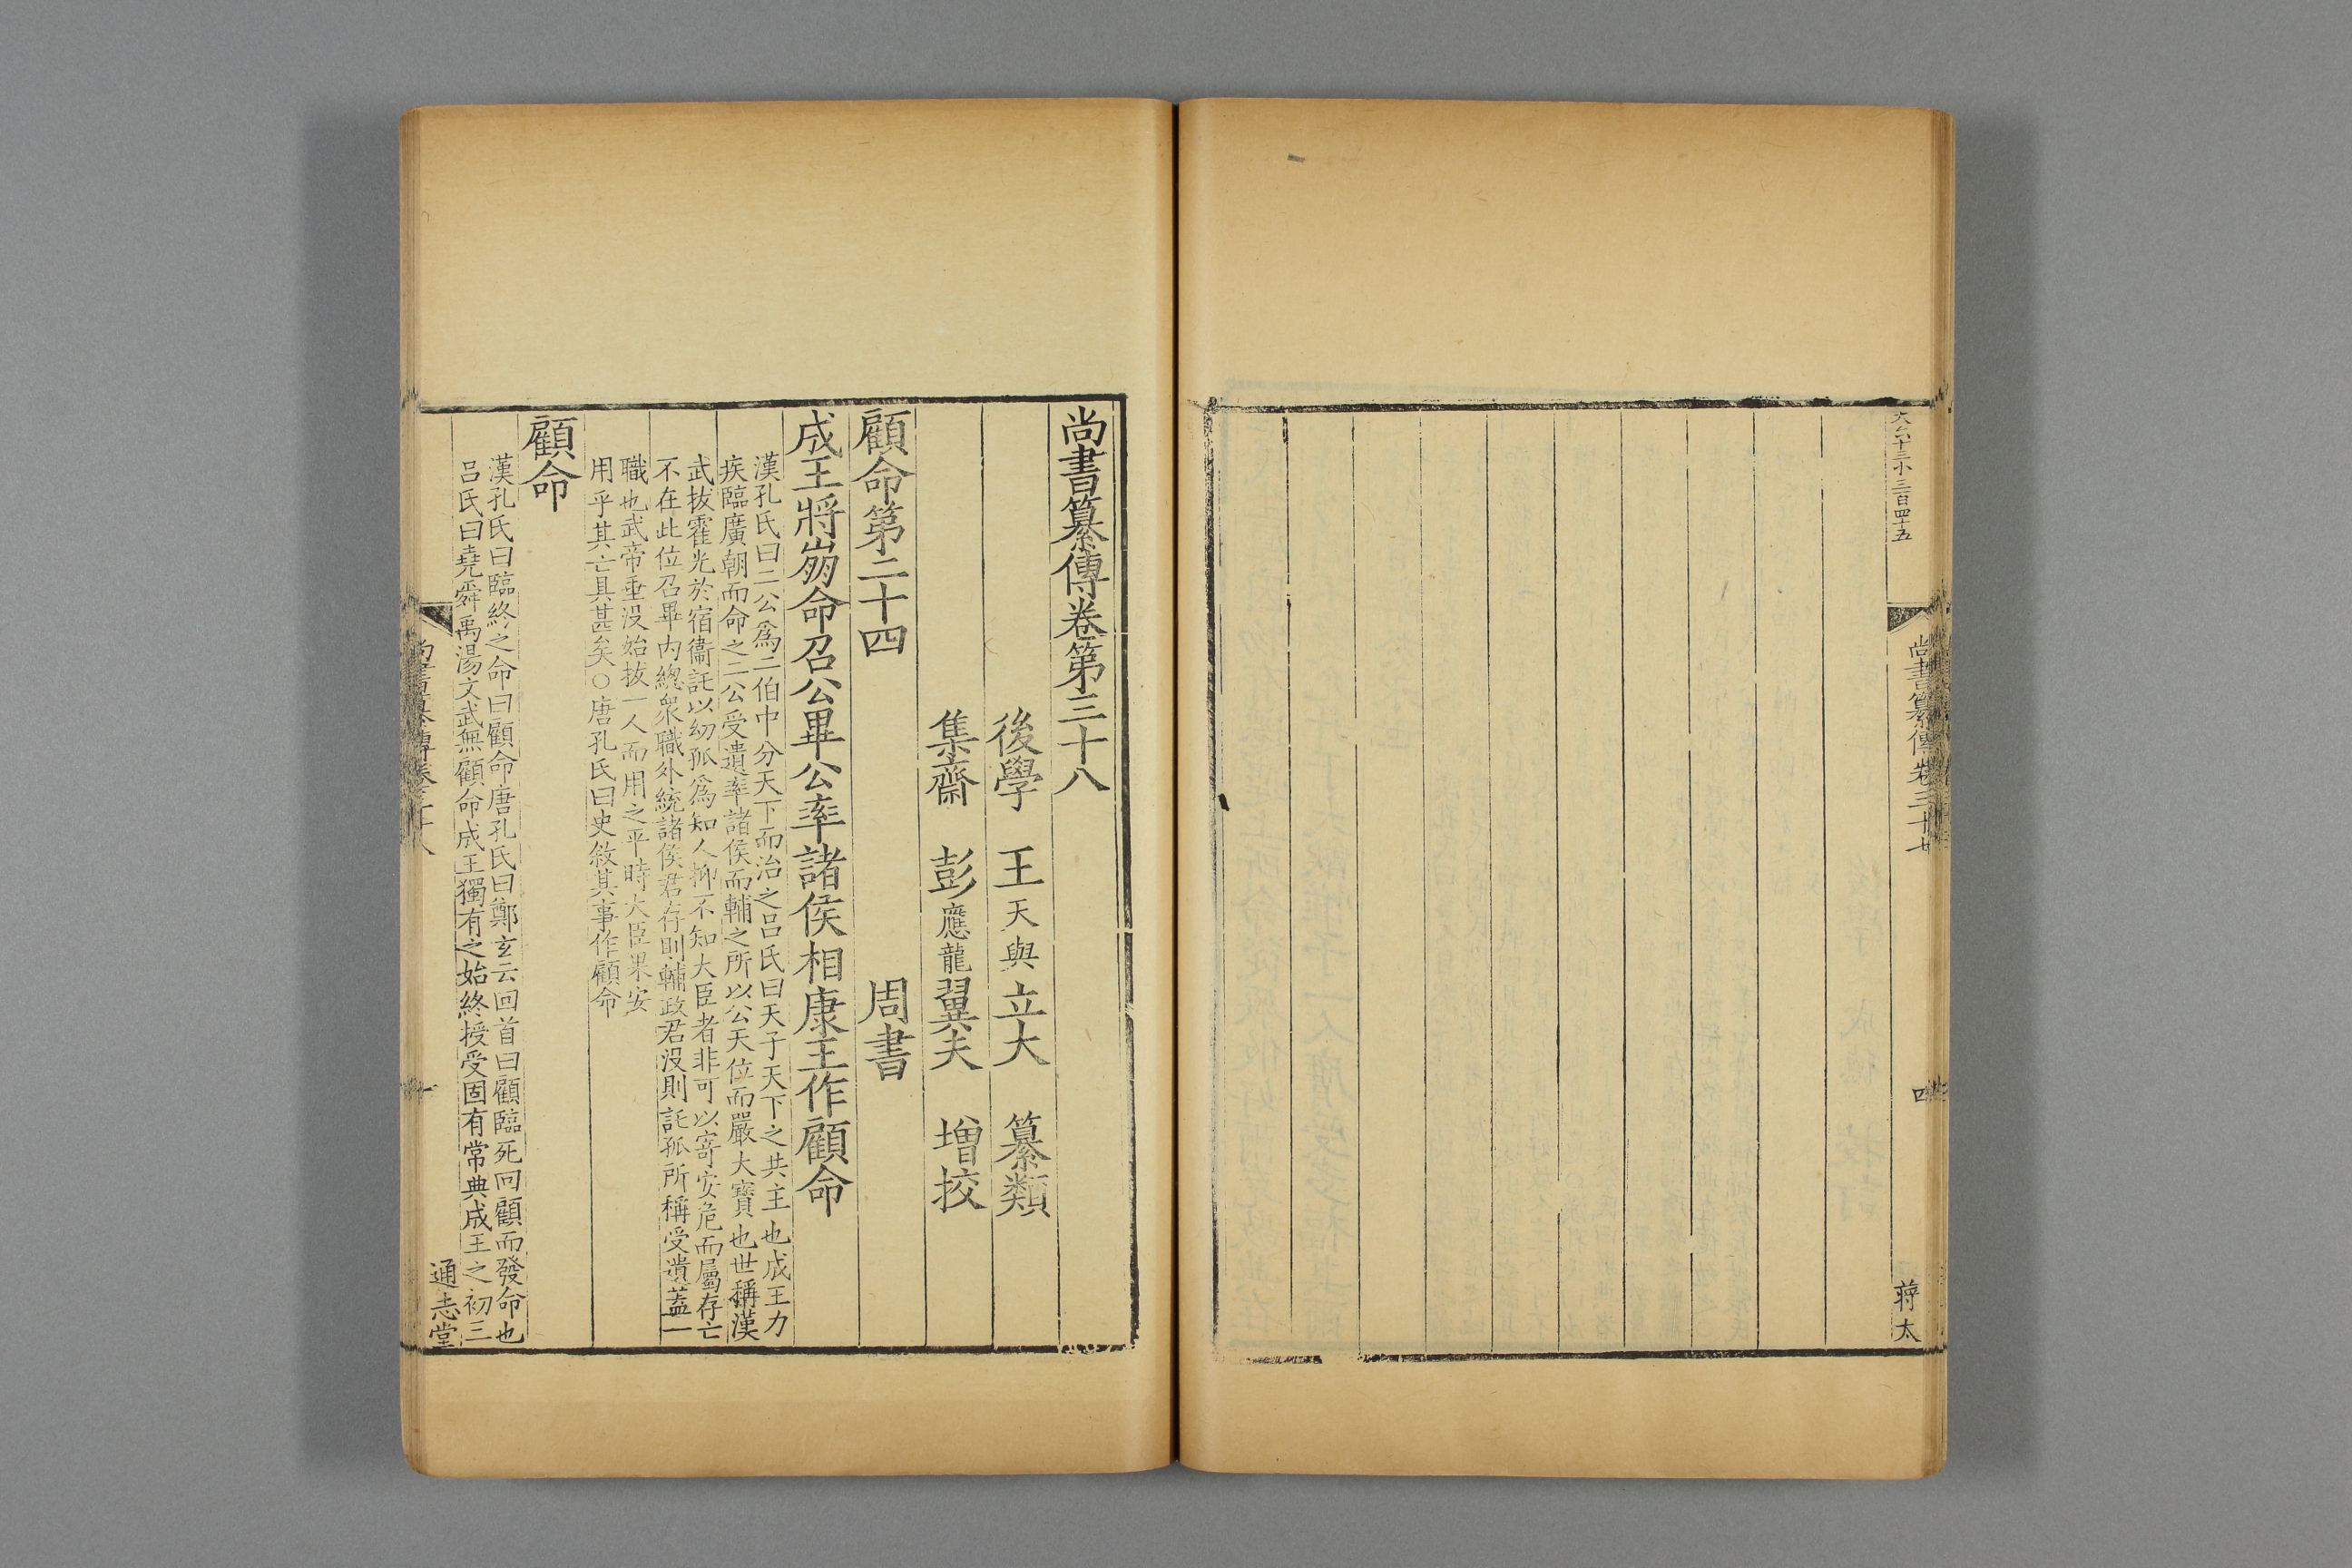 大六十三小三百四十五
尚書纂傳卷三十七
四
蔣太
尚書纂傳卷第三十八
後學 王天與立大 纂類
集齋 彭應龍翼夫 增挍
顧命第二十四 周書
成王將崩命召公畢公率諸侯相康王作顧命
漢孔氏曰二公爲二伯中分天下而治之吕氏曰天子天下之共主也成王力
疾臨廣朝而命之二公受遺率諸侯而輔之所以公天位而嚴大寶也世稱漢
武拔霍光於宿衞託以幼孤爲知人抑不知大臣者非可以寄安危而屬存亡
不在此位召畢内總衆職外統諸侯君存則輔政君没則託孤所稱受遺蓋一
職也武帝垂没始拔一人而用之平時大臣果安
用乎其亡具甚矣○唐孔氏曰史敘其事作顧命
顧命
漢孔氏曰臨終之命曰顧命唐孔氏曰鄭玄云回首曰顧臨死回顧而發命也
吕氏曰堯舜禹湯文武無顧命成王獨有之始終授受固有常典成王之初三
尚書纂傳卷三十八
一
通志堂